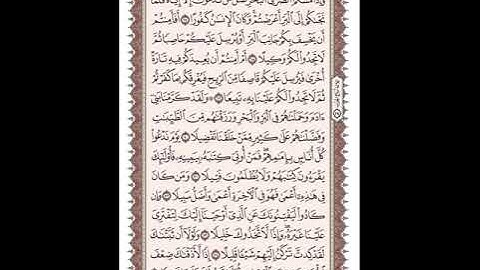 وَإِذَا مَسَّكُمُ ٱلضُّرُّ فِي ٱلْبَحْرِ ضَلَّ مَن تَدْعُونَ إِلَّآ إِيَّاهُ فَلَمَّا
نَجَّىٰكُمْ إِلَى ٱلْبَرِّ أَعْرَضْتُمْ وَكَانَ ٱلْإِنسَٰنُ كَفُورًا ۝ أَفَأَمِنتُمْ
أَن يَخْسِفَ بِكُمْ جَانِبَ ٱلْبَرِّ أَوْ يُرْسِلَ عَلَيْكُمْ حَاصِبًا ثُمَّ
لَا تَجِدُوا۟ لَكُمْ وَكِيلًا ۝ أَمْ أَمِنتُمْ أَن يُعِيدَكُمْ فِيهِ تَارَةً
أُخْرَىٰ فَيُرْسِلَ عَلَيْكُمْ قَاصِفًا مِّنَ ٱلرِّيحِ فَيُغْرِقَكُم بِمَا كَفَرْتُمْ
ثُمَّ لَا تَجِدُوا۟ لَكُمْ عَلَيْنَا بِهِۦ تَبِيعًا ۝ وَلَقَدْ كَرَّمْنَا بَنِيٓ
ءَادَمَ وَحَمَلْنَٰهُمْ فِي ٱلْبَرِّ وَٱلْبَحْرِ وَرَزَقْنَٰهُم مِّنَ ٱلطَّيِّبَٰتِ
وَفَضَّلْنَٰهُمْ عَلَىٰ كَثِيرٍ مِّمَّنْ خَلَقْنَا تَفْضِيلًا ۝ يَوْمَ نَدْعُوا۟
كُلَّ أُنَاسٍۭ بِإِمَٰمِهِمْ فَمَنْ أُوتِيَ كِتَٰبَهُۥ بِيَمِينِهِۦ فَأُو۟لَٰٓئِكَ
يَقْرَءُونَ كِتَٰبَهُمْ وَلَا يُظْلَمُونَ فَتِيلًا ۝ وَمَن كَانَ
فِي هَٰذِهِۦٓ أَعْمَىٰ فَهُوَ فِي ٱلْءَاخِرَةِ أَعْمَىٰ وَأَضَلُّ سَبِيلًا ۝ وَإِن
كَادُوا۟ لَيَفْتِنُونَكَ عَنِ ٱلَّذِيٓ أَوْحَيْنَآ إِلَيْكَ لِتَفْتَرِيَ
عَلَيْنَا غَيْرَهُۥ وَإِذًا لَّٱتَّخَذُوكَ خَلِيلًا ۝ وَلَوْلَآ أَن ثَبَّتْنَٰكَ
لَقَدْ كِدتَّ تَرْكَنُ إِلَيْهِمْ شَيْـًٔا قَلِيلًا ۝ إِذًا لَّأَذَقْنَٰكَ ضِعْفَ